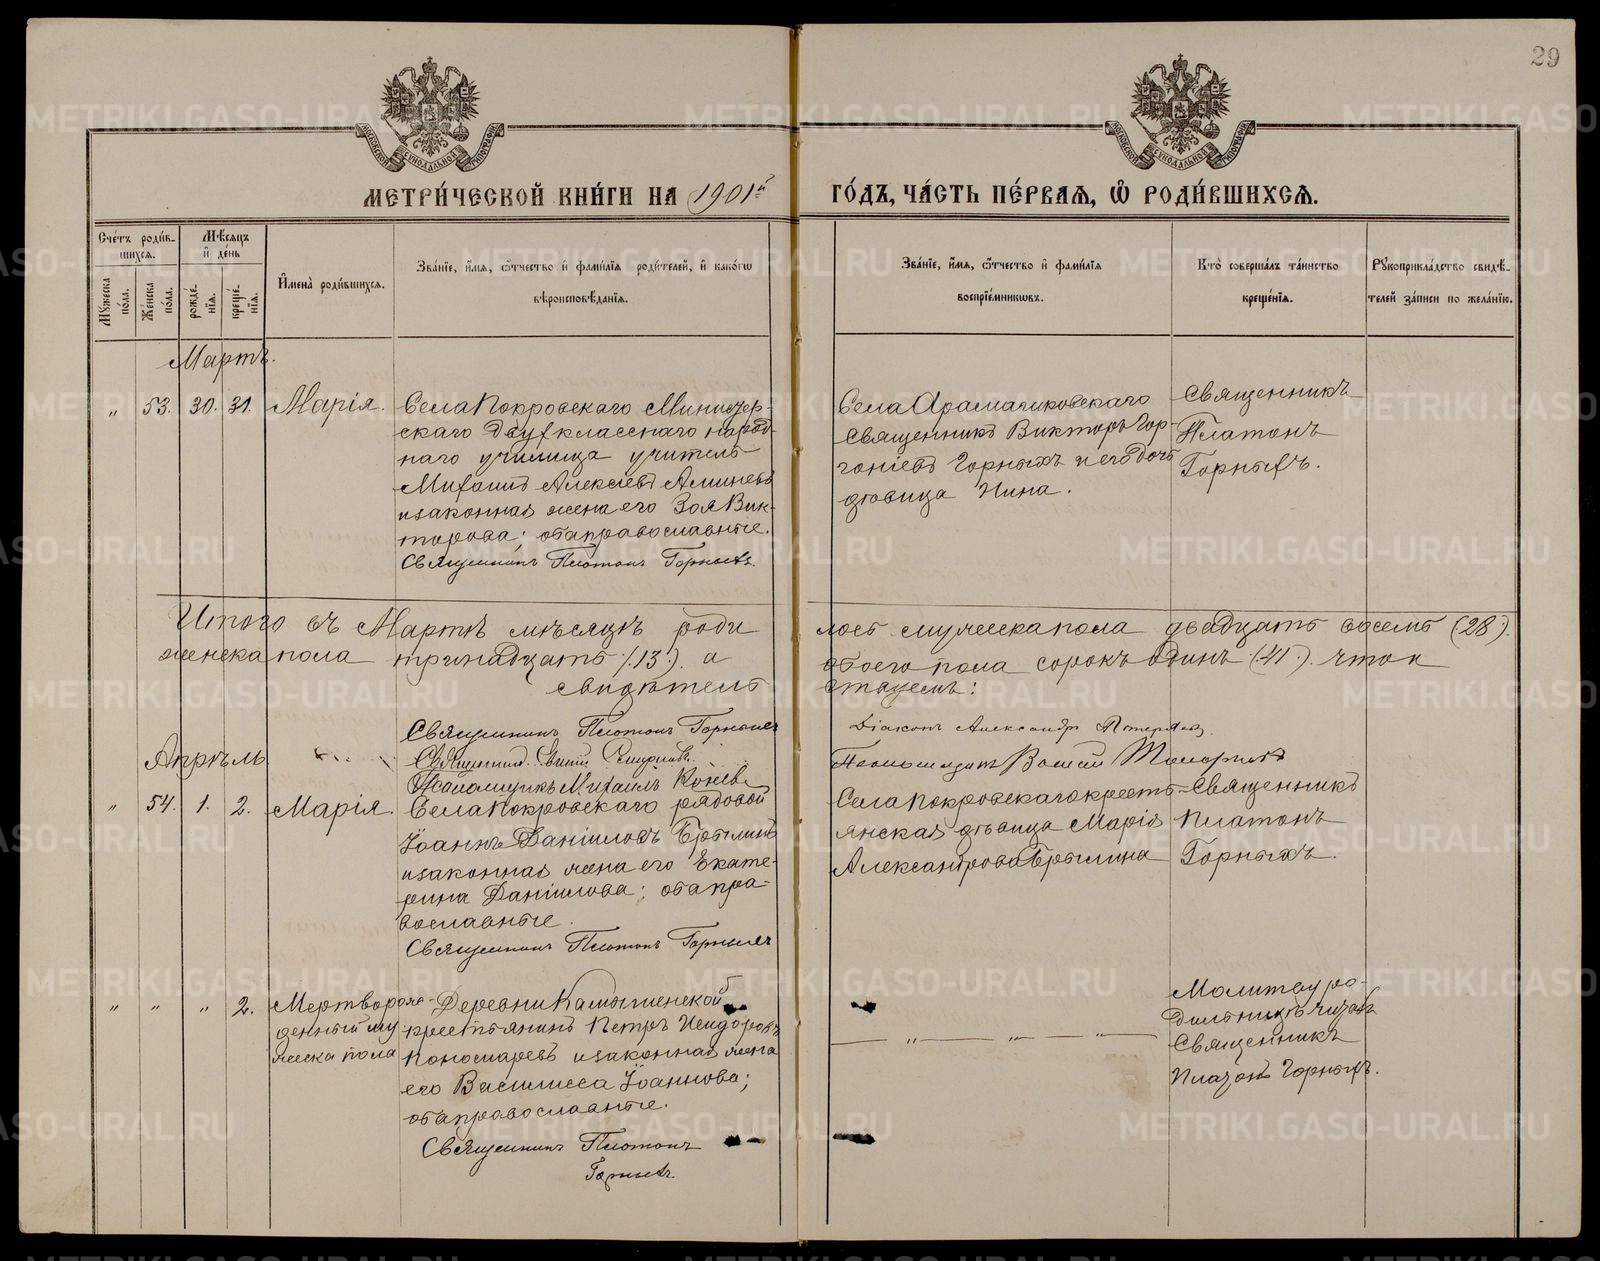 29
МОСКОВСКОЙ СѴНОДАЛЬНОЙ ТИПОГРАФІИ
МОСКОВСКОЙ СѴНОДАЛЬНОЙ ТИПОГРАФІИ
МЕТРИ́ЧЕСКОЙ КНИ́ГИ НА 1901й
ГО́ДЪ, ЧА́СТЬ ПЕ́РВАЯ, Ѡ҆ РОДИ́ВШИХСЯ.
Сче́тъ роди́в-
шихся.
Мѣ́сяцъ
и҆ де́нь
Мꙋ́жеска
по́ла.
Же́нска
по́ла.
рожде́-
нїѧ.
креще́-
нїѧ.
И҆мена̀ роди́вшихсѧ.
Зва́нїе, и҆́мѧ, ѻ҆́тчество и҆ фами́лїѧ роди́телей, и҆ како́гѡ
вѣроисповѣ́данїѧ.
Зва́нїе, и҆́мѧ, ѻ҆́тчество и҆ фами́лїѧ
воспрїе́мникѡвъ.
Кто̀ соверша́лъ та́инство
креще́нїѧ.
Рꙋкоприкла́дство свидѣ́-
телей за́писи по жела́нїю.
Мартъ.
" 53. 30. 31. Марія.
Села Покровскаго Министер-
скаго двухкласснаго народ-
наго училища учитель
Михаилъ Алексіевъ Аминевъ
и законная жена его Зоя Вик-
торова; оба православные.
Священникъ Платонъ Горныхъ
Села Арамашковскаго
священникъ Викторъ Гор-
гоніевъ Горныхъ и его дочь
дѣвица Нина.
Священникъ
Платонъ
Горныхъ.
Итого въ Мартѣ мѣсяцѣ роди
лось мужеска пола двадцать восемь (28).
женска пола тринадцать (13). а
обоего пола сорокъ одинъ (41). что и
свидѣтель
ствуемъ:
Священникъ Платонъ Горныхъ
Діаконъ Александръ
Священникъ
Псаломщикъ Михаилъ
Псаломщикъ
Апрѣль
" 54. 1. 2. Марія.
Села Покровскаго рядовой
Іоаннъ Даніиловъ Брылинъ
и законная жена его Екате-
рина Даніилова; оба пра-
вославные.
Священникъ Платонъ Горныхъ
Села Покровскаго кресть-
янская дѣвица Марія
Александрова Брылина
Священникъ
Платонъ
Горныхъ.
" " " 2. Мертворож-
денный му
жеска пола
Деревни Камышенской
крестьянинъ Петръ Исидоровъ
Пономаревъ и законная жена
его Василисса Іоаннова;
оба православные.
Священникъ Платонъ
Горныхъ.
" " "
Молитву ро-
дильницѣ читалъ
Священникъ
Платонъ Горныхъ.
METRIKI.GASO-URAL.RU